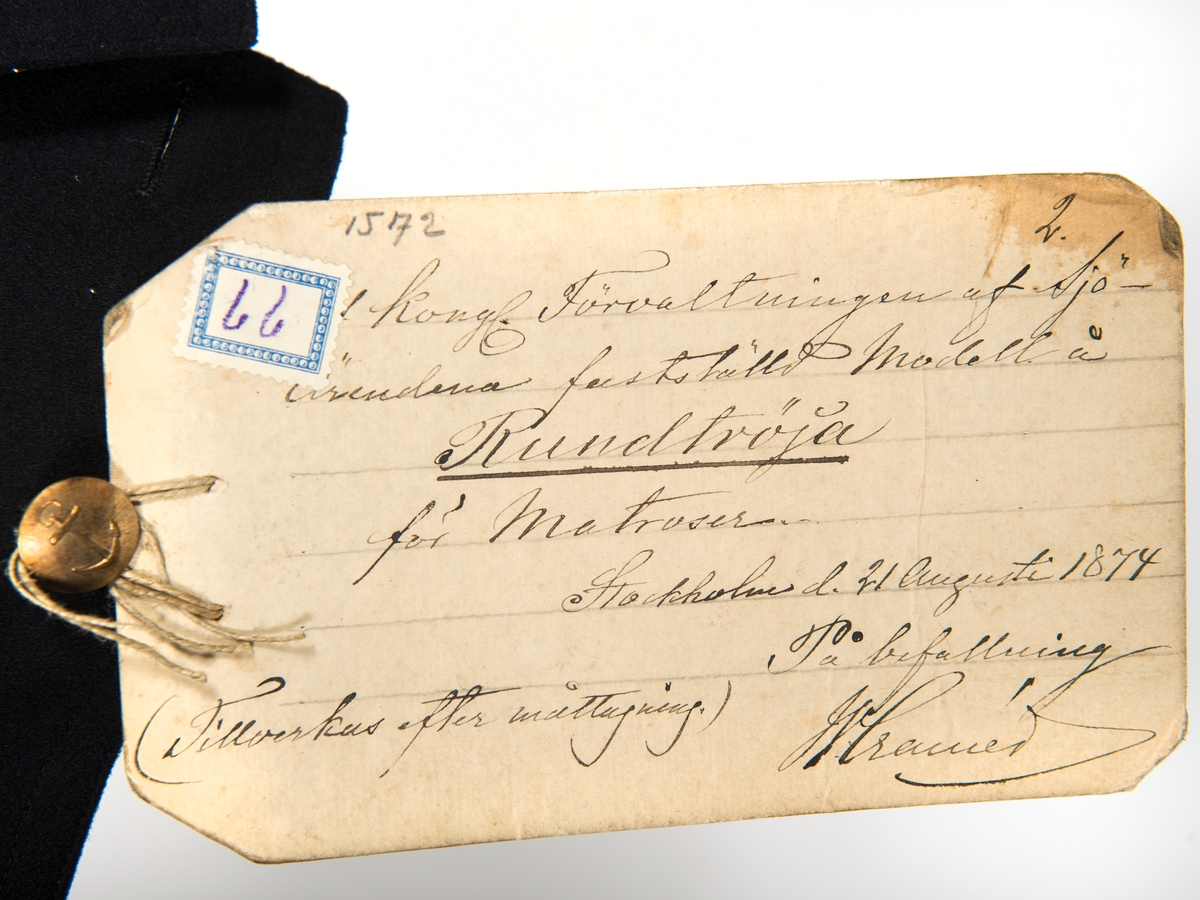 1572
2.
66
Kongl. Förvaltningen af Sjö-
ärendena fastställd Modell å
Rundtröja
för Matroser.
Stockholm d. 21 Augusti 1874
På befallning
(Tillverkas efter måttagning.)